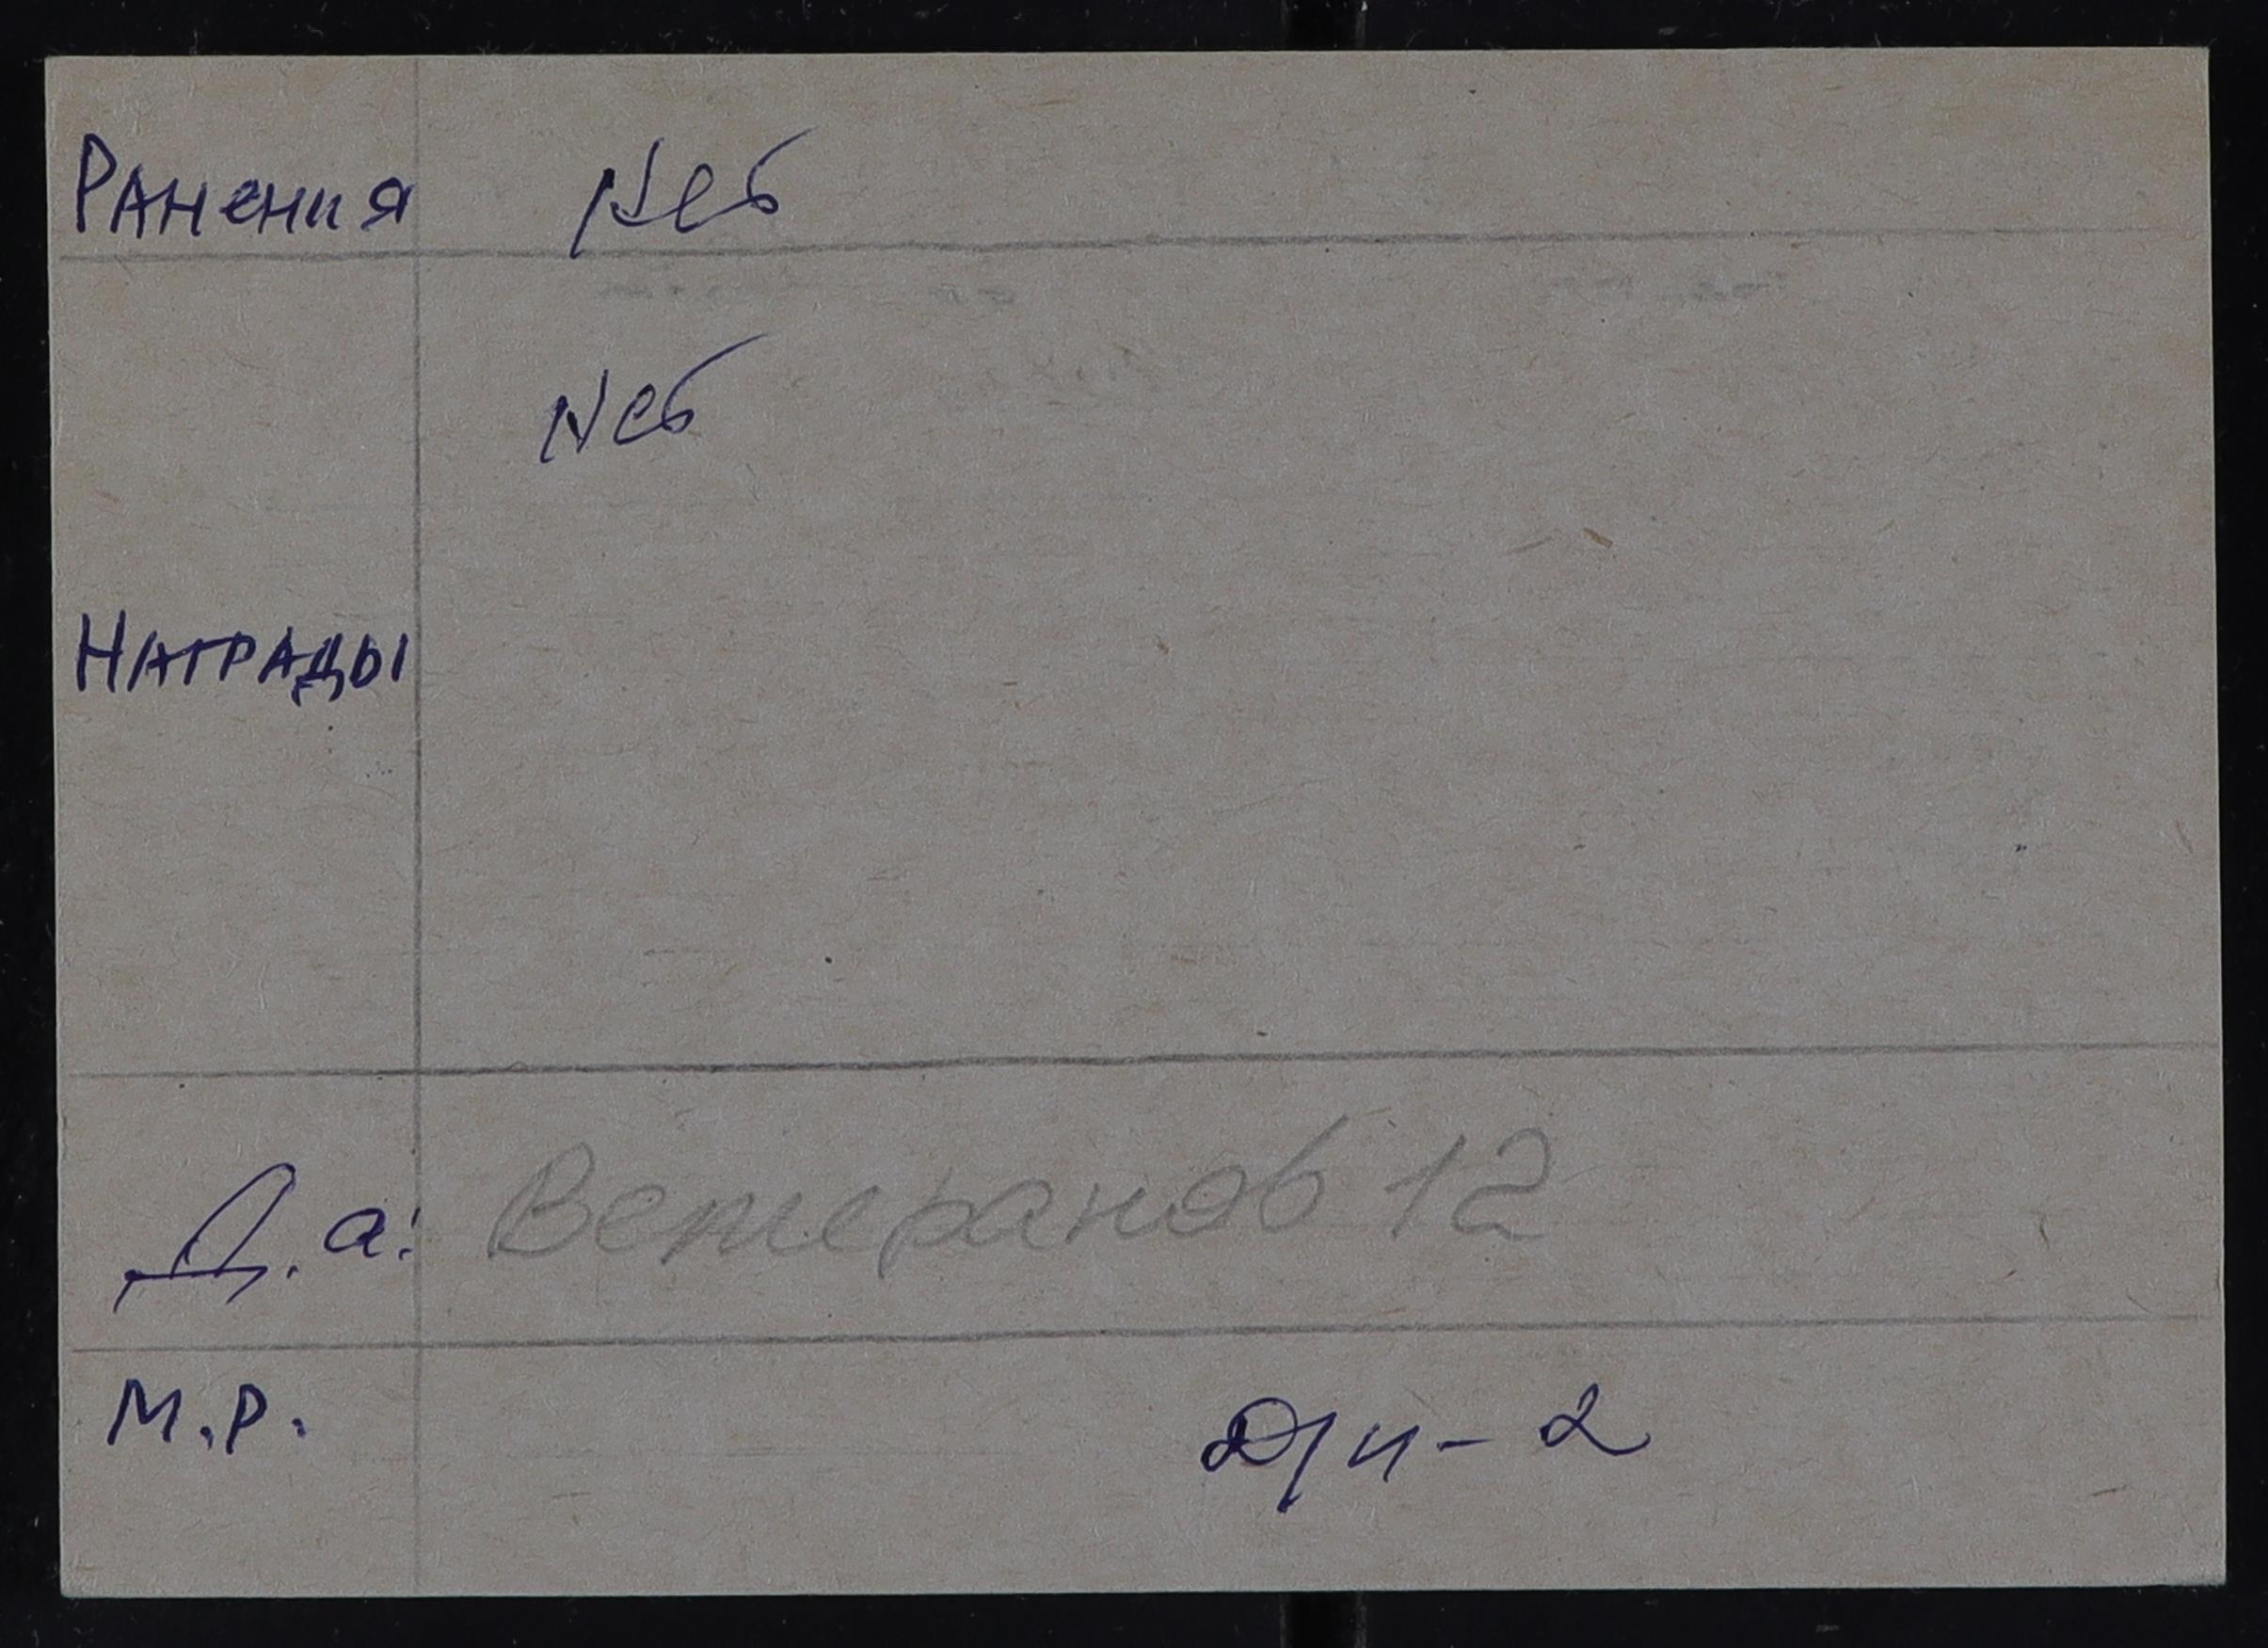 Ранения Нет
Нет
Награды
Д.а: Ветеранов 12
М.Р. Д/и - 2